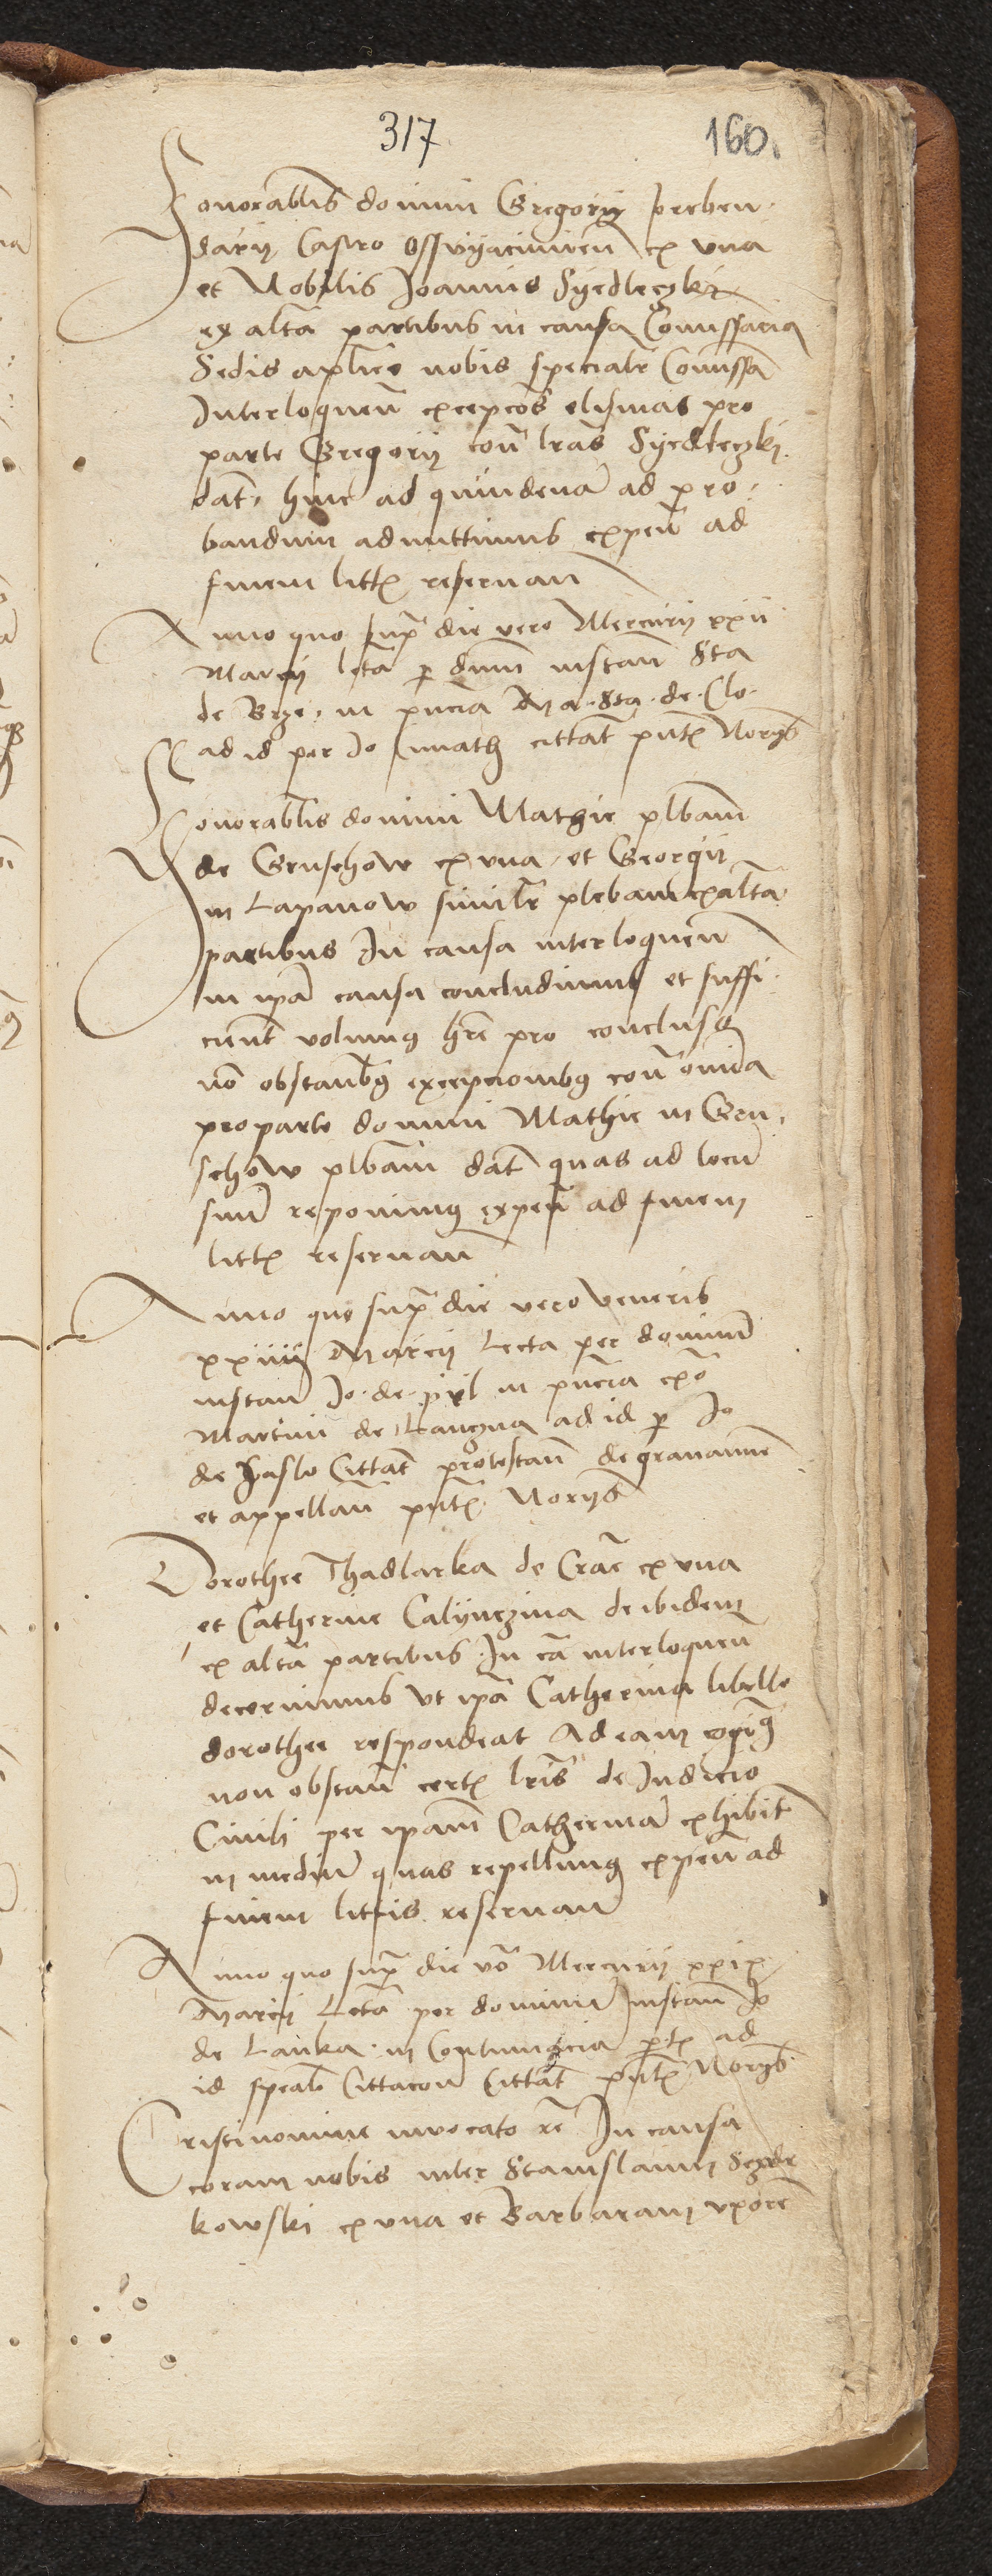 317
160.
Honorabilis domini Gregorij preben-
darij Castro Osswyacimien ex vna
et Nobilis Joannis Syedleczki
ex altã partibus in causa Comissaria
Sedis aplice nobis specialr Comissã
Interloquen excepcões elisinas pro
parte Gregorij con lras Syedleczki
dat, hinc ad quindenã ad pro-
bandum admittimus expen ad
finem litis reseruan
Anno quo supra die vero Mercurij xxii
Marcij lcta per dnm instan Sta
de Brze. in pncia Ma. Sta. de. Clo.
ad id per Jo citat pntibus Norijs
Honorabilis domini Mathie plbani
de Gruschow ex vna et Georgij
in Lapanow similr plebani ex altã
partibus In causa interloquen
in ipã causa concludimus et suffi-
cient volumus hre pro conclusa
nõ obstantibus excepcionibus con omnia
pro parte domini Mathie in Gru-
schow plbani dat quas ad locũ
suũ reponimus expen ad finem
litis reseruan
Anno quo supra die vero Veneris
xxiiii Marcij Lecta per dominũ
instan Jo. de. pil in pncia
Martini de Lanczna ad id per Jo
de Jaslo Cittat protestan de grauamine
et appellan pntibus Norijs
Dorothee Thadlarka de Crac ex vna
et Catherine Calijnczina de ibidem
ex altã partibus In cã interloquen
decernimus vt ipã Catherina libello
dorothee respondeat Ad eam cogimus
non obstan certis lris de Judicio
Ciuili per ipam Catherinã exhibit
in mediũ quas repellimus expen ad
finem litis reseruan
Anno quo supra die vo Mercurij xxix
Marcij Lcta per dominũ instan Jo
de Lanka in Contumacia partis ad
id speali Cittacon Cittat pntibus Norijs
Cristi nomine inuocato re In causa
coram nobis inter Stanislaum
kowski ex vna et Barbaram vxore